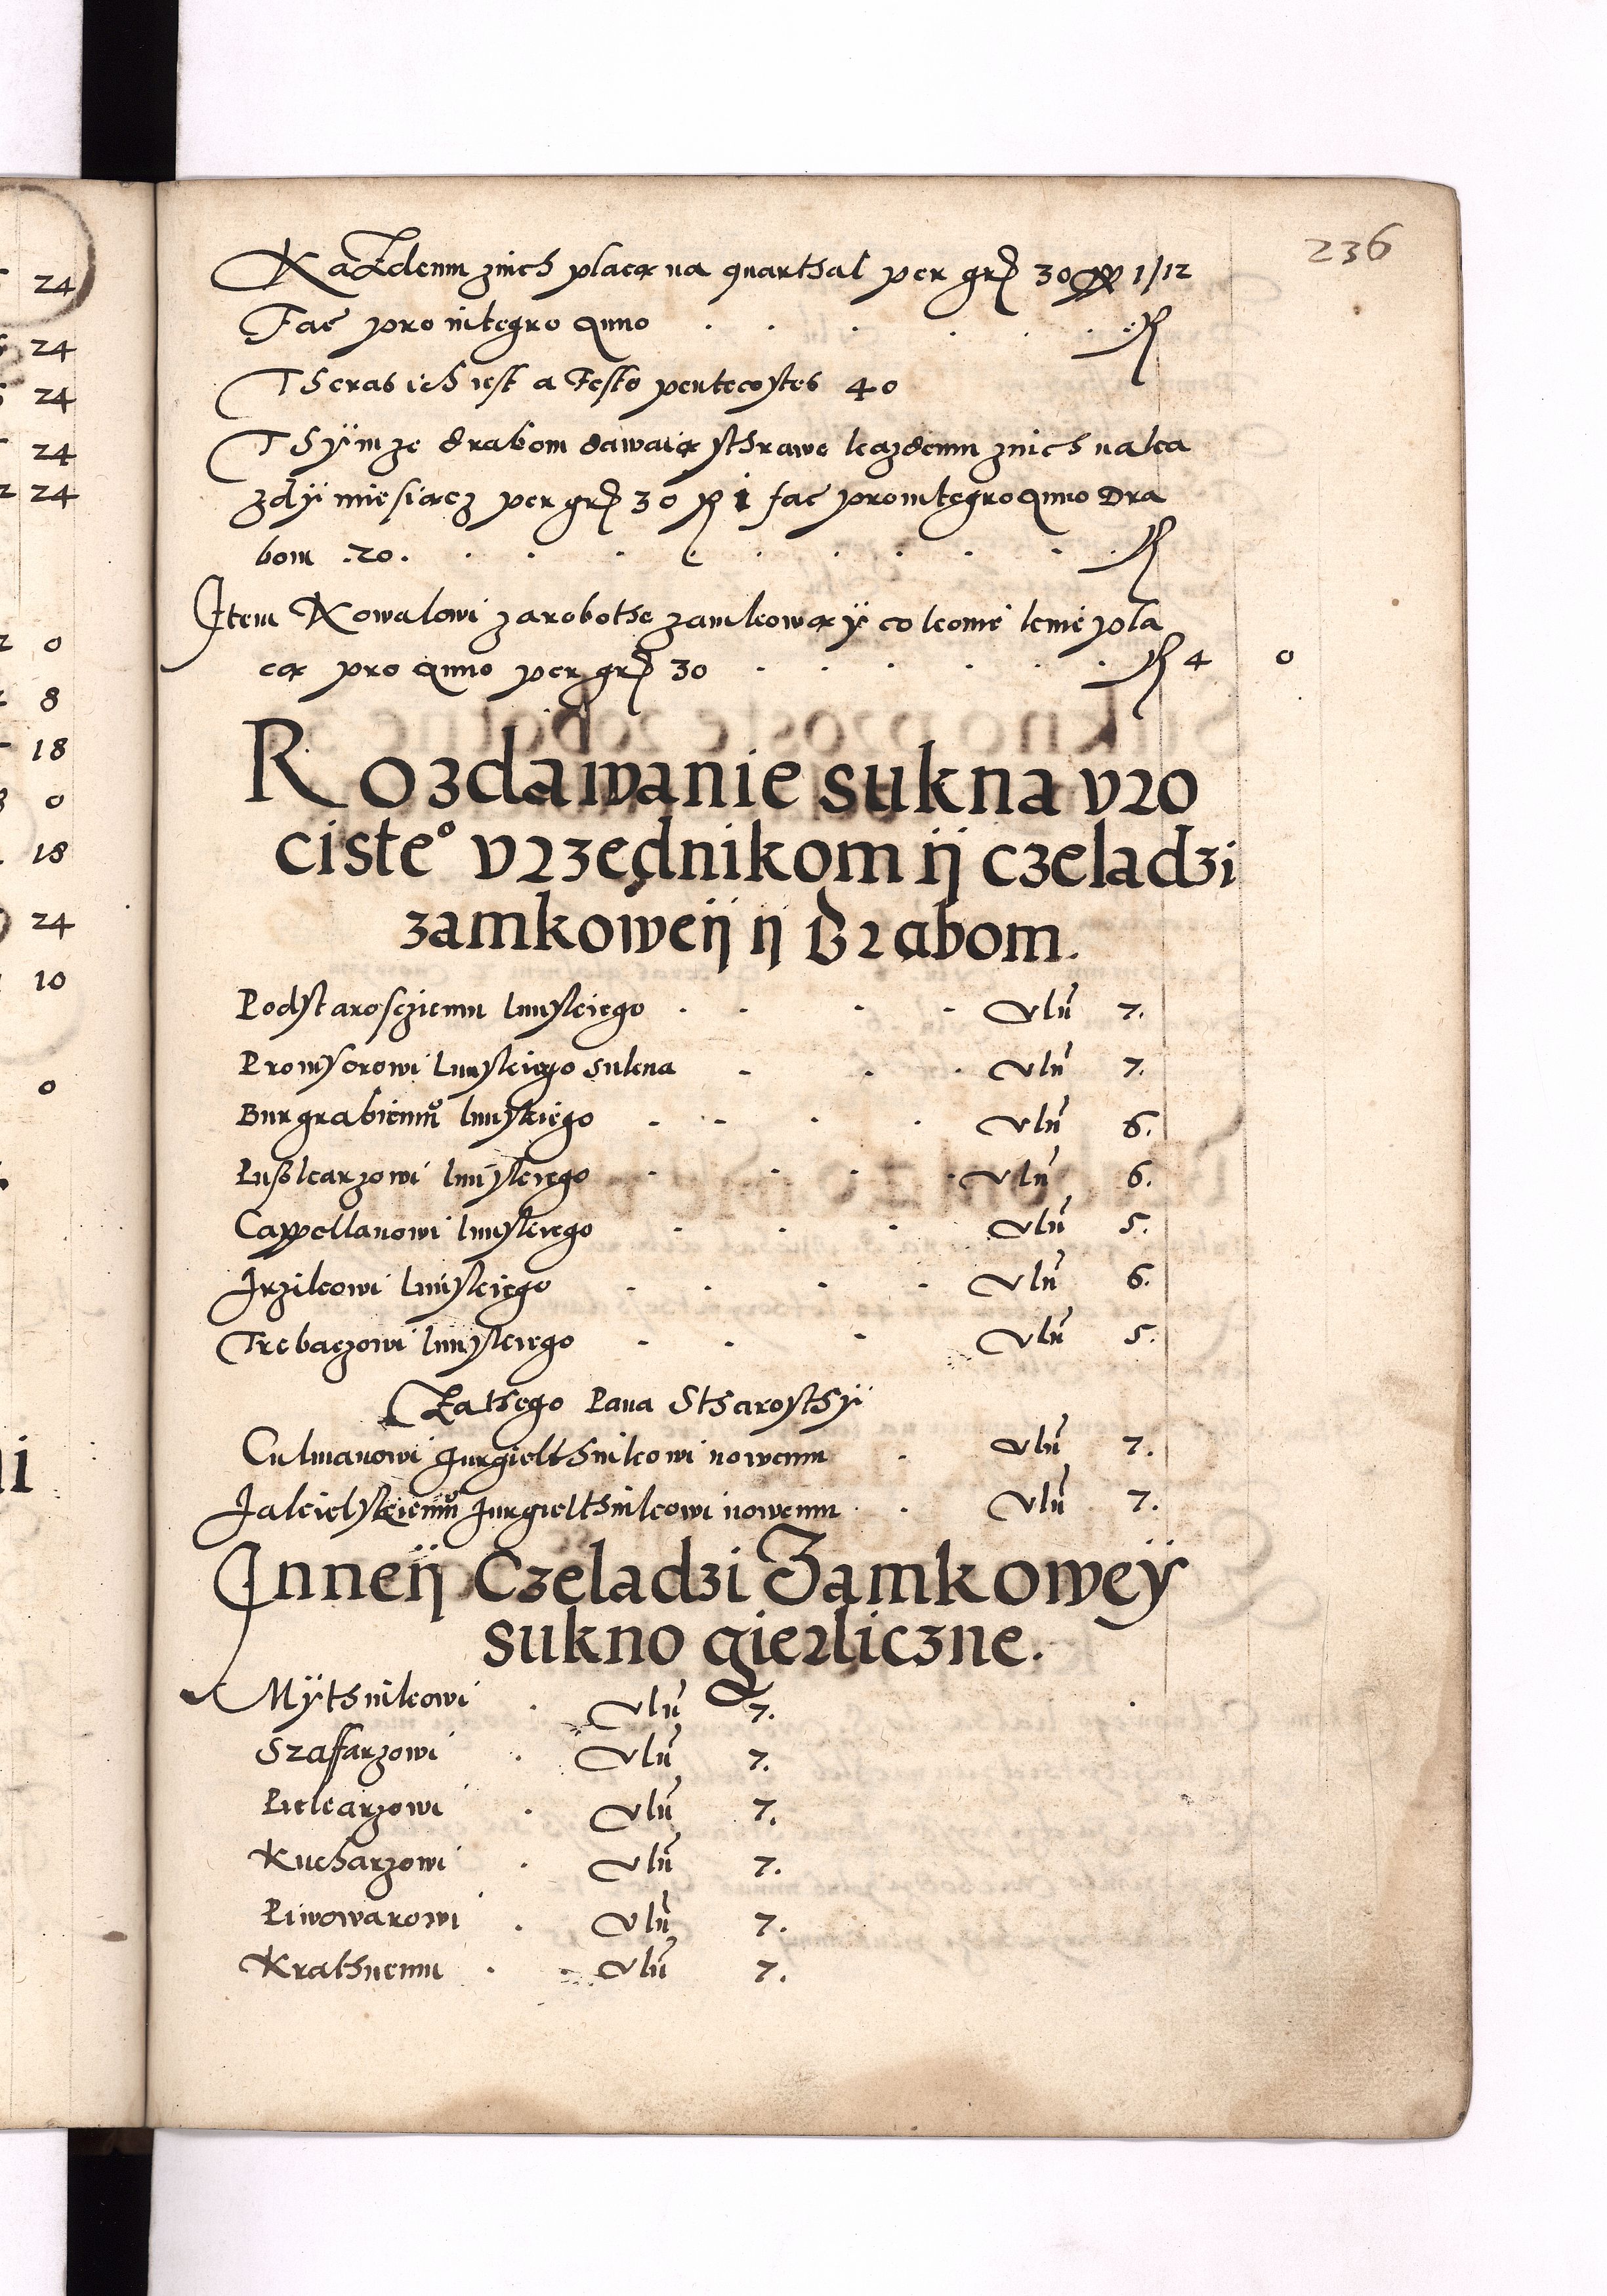 236
Każdemu znich placą na quarthal per grß 30 1/12
Fac pro integro anno
Theras ich iest a Festo pentecostes 40
Thÿmze drabom dawaią sthrawe kazdemu znich na ka
zdÿ miesiącz per grß 30 ß 1 fac pro integro anno Dra
bom 20.
Item Kowalowi za robothe zamkową ÿ co komu kuie pla
cą pro anno per grß 30 ß 4 0
Rozdawanie sukna vro
ciste° vrzędnikom ij czeladzi
zamkoweij ij Drabom.
Podstarosciemu lunskiego vln 7.
Prowysorowi lunskiego sukna vln 7.
Burgrabiemu lunskiego vln 6.
Pußkarzowi lunskiego vln 6.
Cappellanowi lunskiego vln 5.
Jrzikowi lunskiego vln 6.
Trebaczowi lunskiego vln 5.
Zathego Pana Stharosthÿ
Culmanowi Jurgielthnikowi nowemu vln 7.
Jakielskiemu Jurgielthnikowi nowemu vln 7.
Inneij Czeladzi Zamkoweÿ
sukno gierliczne.
Mÿthnikowi vln 7.
Szaffarzowi vln 7.
Piekarzowi vln 7.
Kucharzowi vln 7.
Piwowarowi vln 7.
Krathnemu vln 7.
24
24
24
24
24
0
8
18
0
18
24
10
0